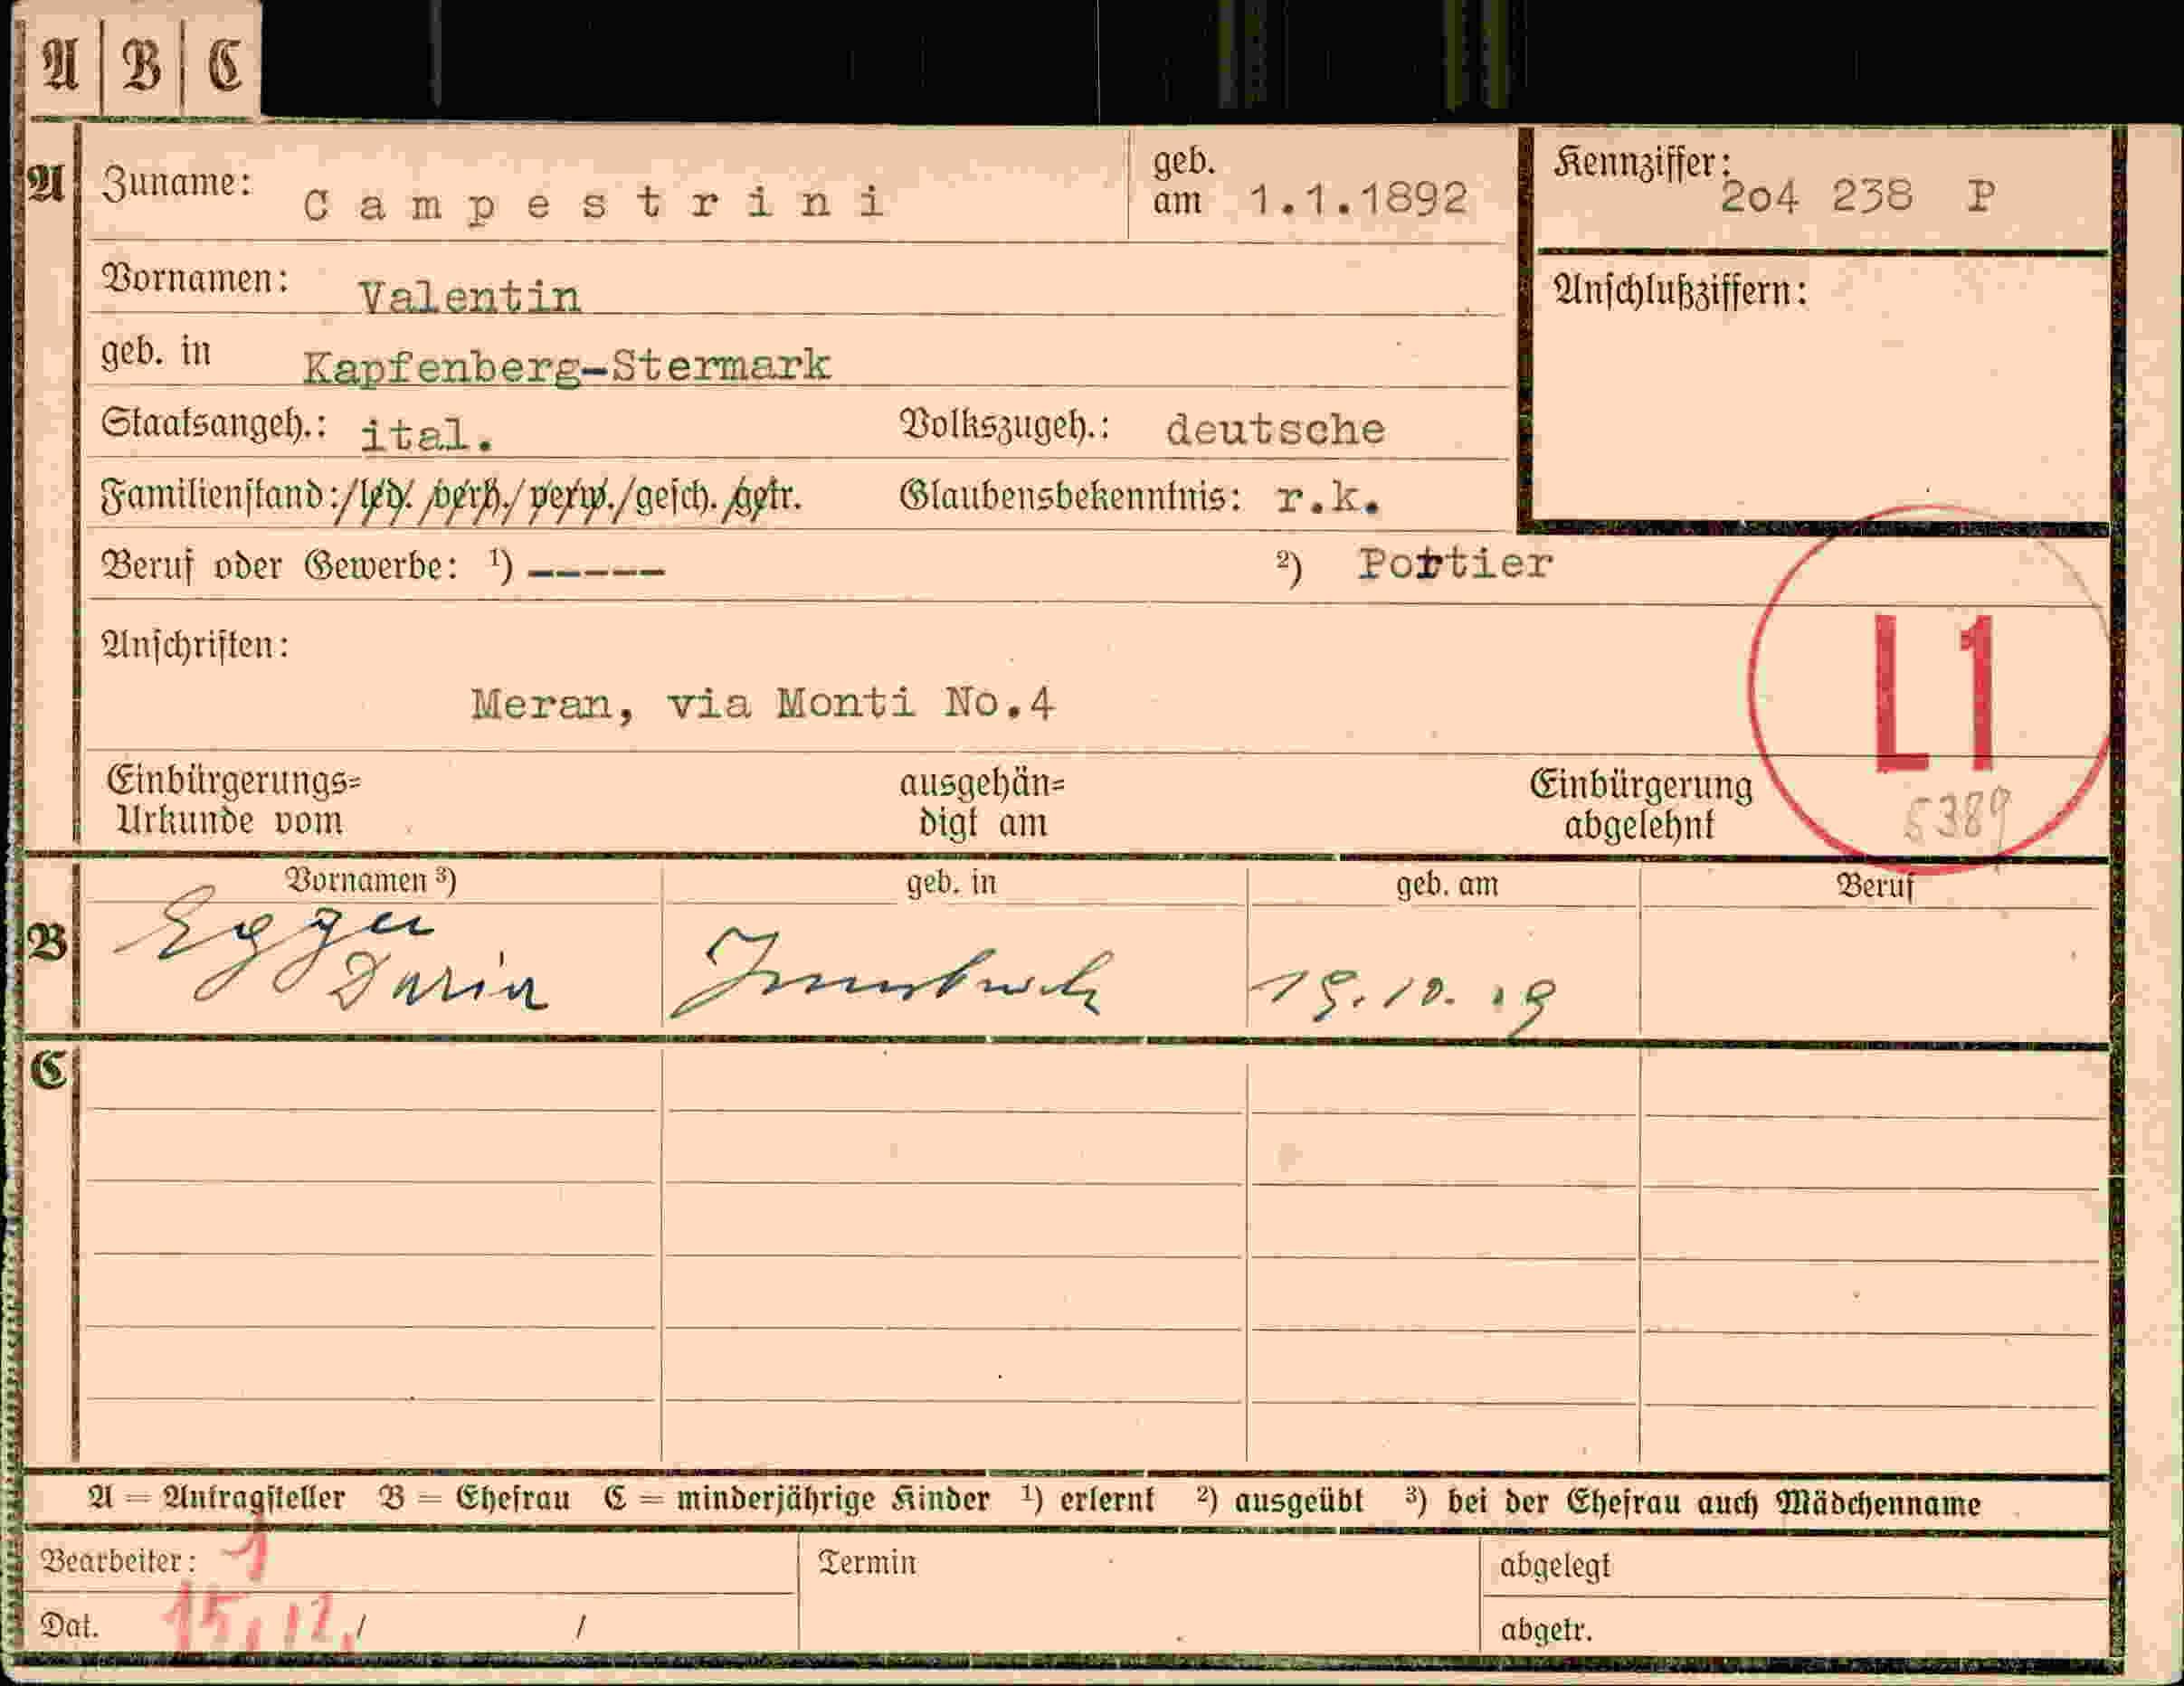 A B C
A
Zuname: Campestrini
geb. am 1.1.1892
Kennziffer: 2o4 238 P
Vornamen: Valentin
Anschlußziffern:
geb. in Kapfenberg-Stermark
Staatsangeh.: ital. Volkszugeh.: deutsche
Familienstand: /led. /verh./ verw./gesch. /getr. Glaubensbekenntnis: r.k.
Beruf oder Gewerbe: 1) ----- 2) Portier
Anschriften:
Meran, via Monti No.4
L1
5389
Einbürgerungs= ausgehän= Einbürgerung
Urkunde vom digt am abgelehnt
B
Vornamen 3) geb. in geb. am Beruf
Egger
Daria Innsbruck 19.10.19
C
A = Antragsteller B = Ehefrau C = minderjährige Kinder 1) erlernt 2) ausgeübt 3) bei der Ehefrau auch Mädchenname
Bearbeiter: 1 Termin abgelegt
Dat. 15.12. / / abgetr.